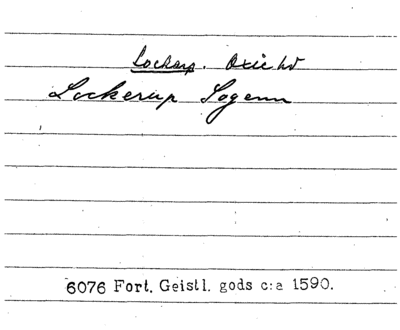 Lockarp. Oxie hd
Lockerup Sogenn
6076 Fort. Geistl. gods c:a 1590.